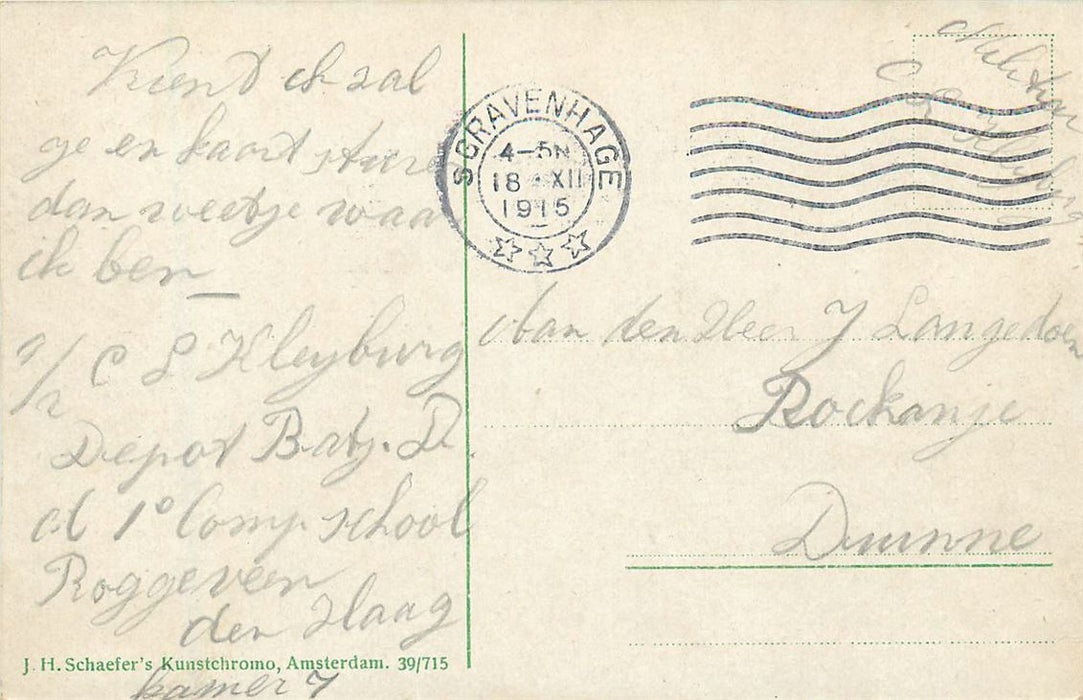 Vrient ik zal
ge en kaart sture
dan weetje waar
ik ben
C L Kleyburg
Depot Batj. D.
cl 1e Comp school
Roggeveen
den Haag
kamer 7
J. H. Schaefer's Kunstchromo, Amsterdam. 39/715
S GRAVENHAGE
4-5N
18 XII
1915
C L Kleyburg
Aan den Heer J Langedoen
Rockanje
Duinne